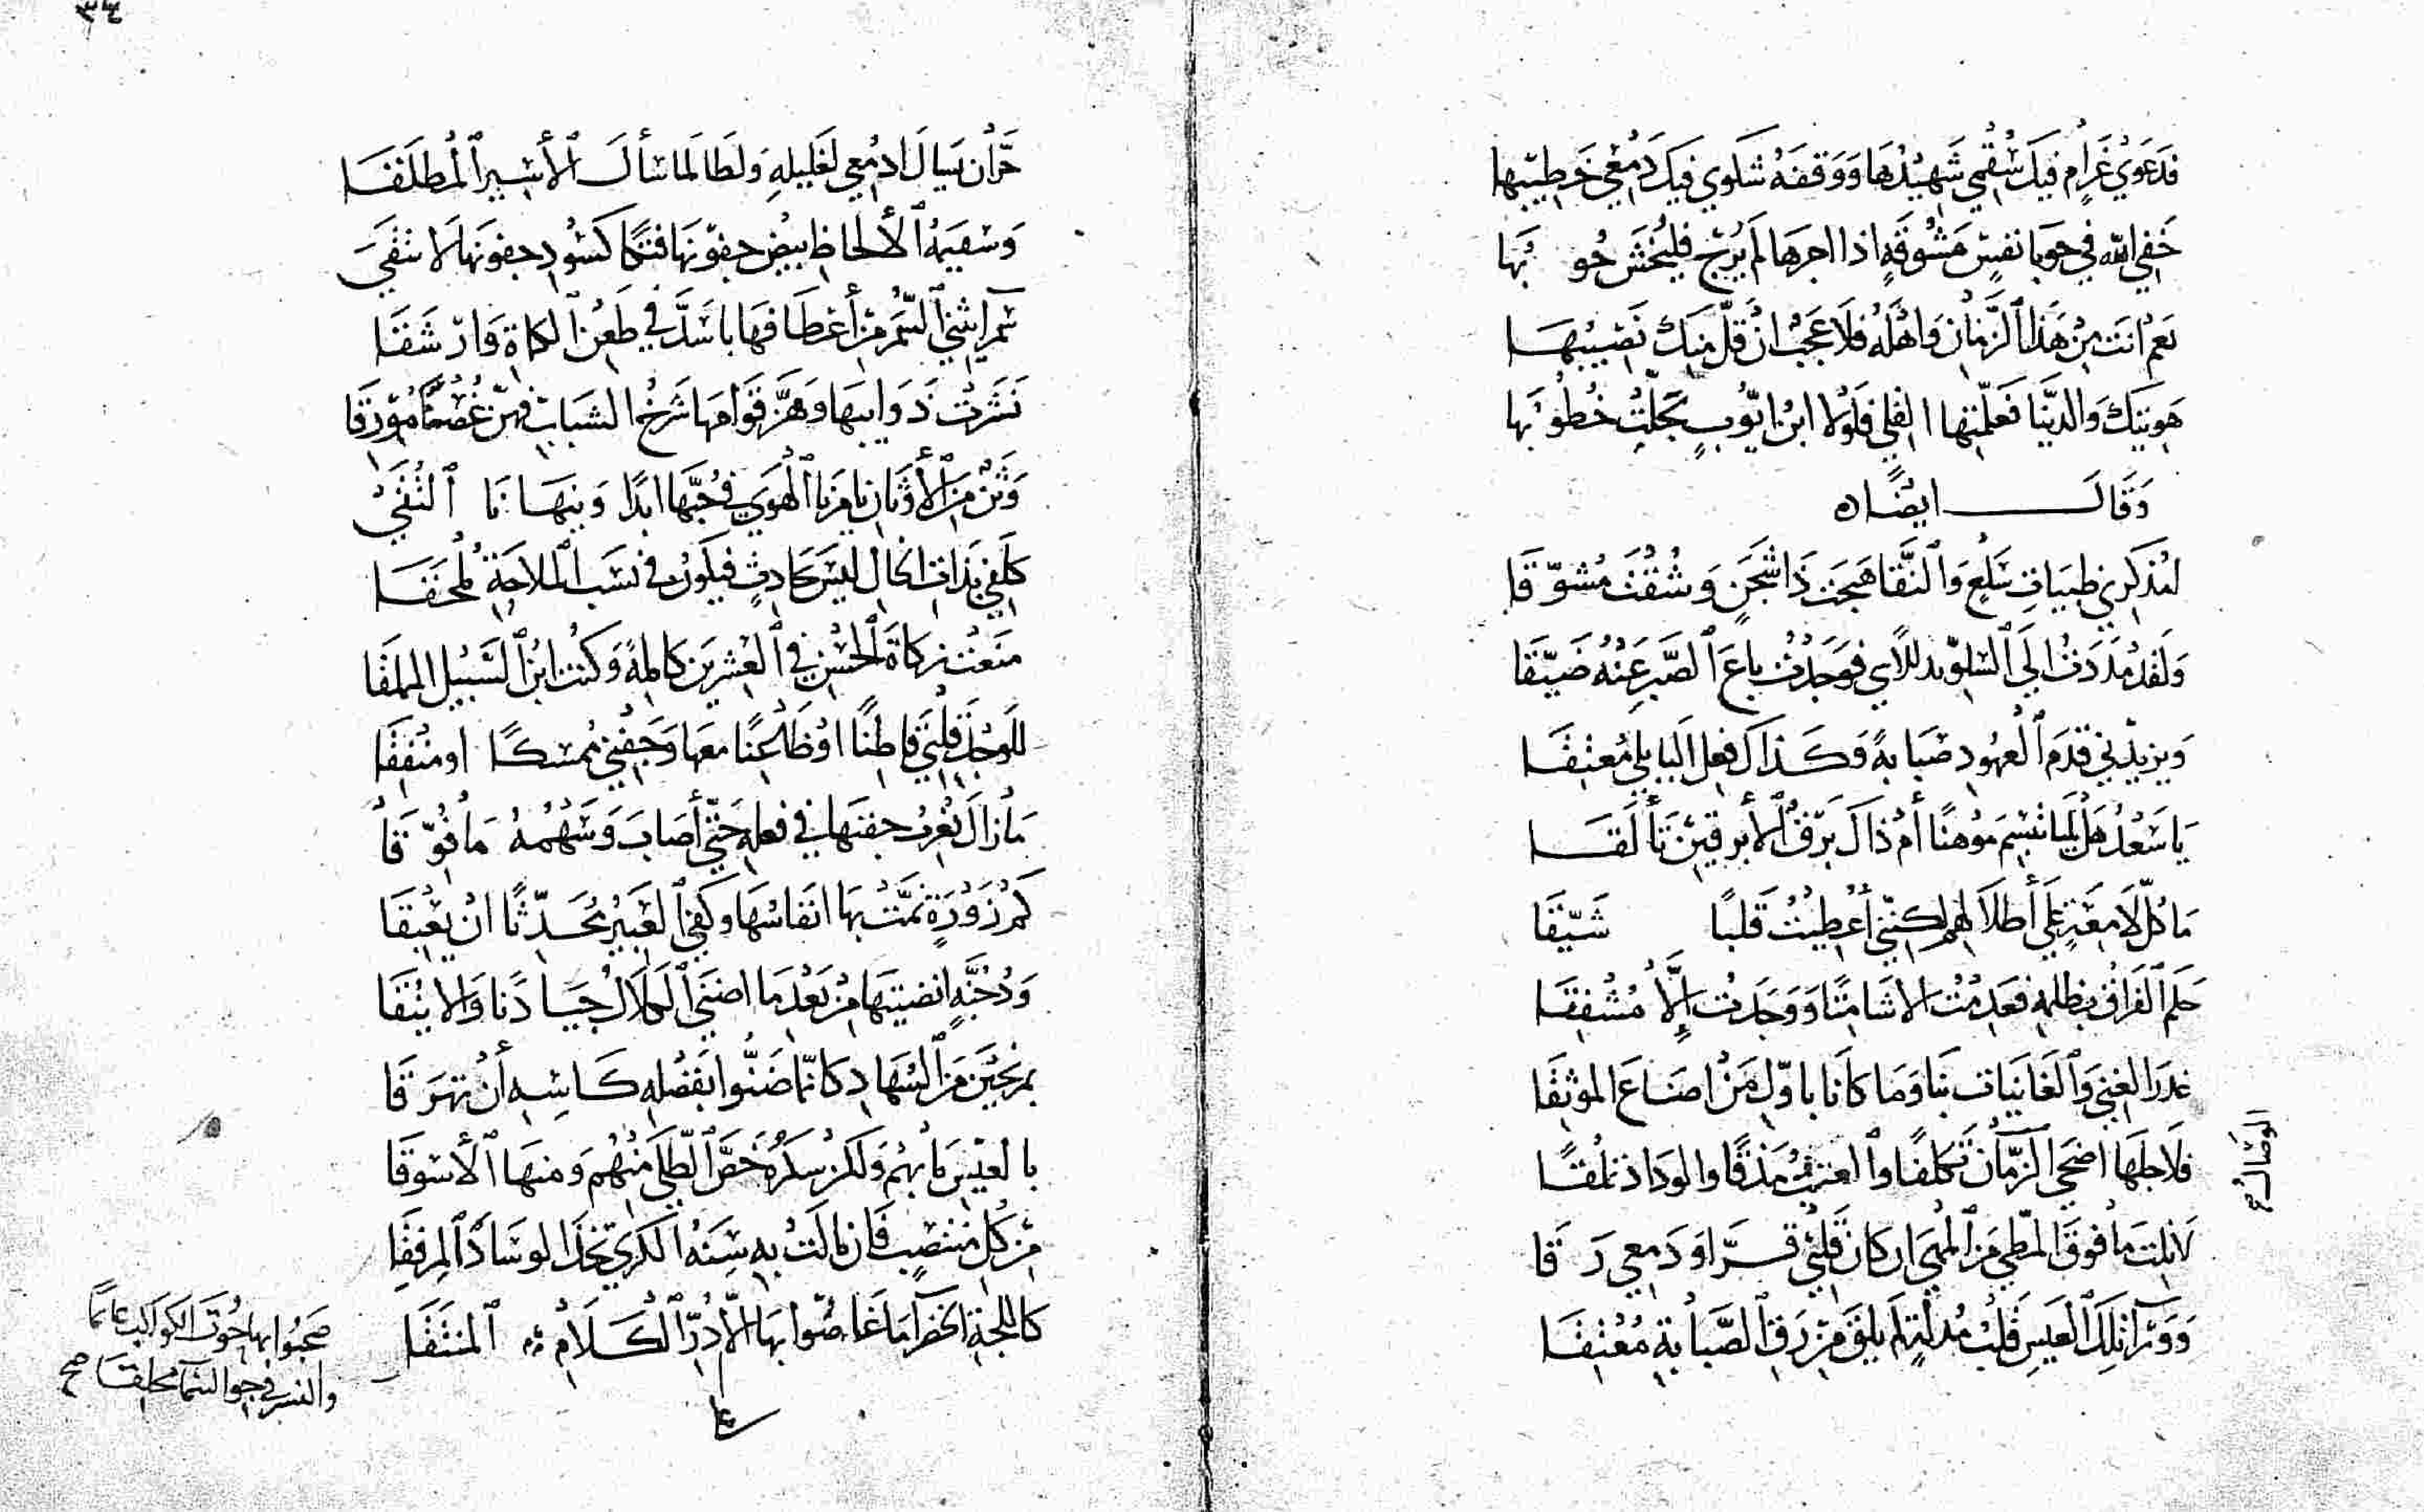 فدعوى غرام فيك سُقْمي شَهِيْدُهَا وَوَقفَة شكوي فيك دَمْعي خَطِيبُها
خَفِ الله في حَوبا نفسٍ مَشُوقَةٍ اذا اجرهَا لم يُرْجَ فليُخْشَ حُوبُهَا
نعم انت مِنْ هَذا الزَّمَانِ وَاهْلِهِ فلا عَجَبٌ انْ قلَّ منك نَصِيْبُهَا
هويتك وَالدنيَا فَعلّمتها القلي فلَوْلا ابنُ ايّوبٍ تجلّتْ خُطُوبُهَا
وَقَالَ ايضًاه
لتذكري ظبيَاتِ سَلْعٍ وَالنَّقَا هيجتَ ذَا شجَنٍ وَشُقْتَ مُشوّقَا
وَلقدْ مَدَدْتُ الي السّلوّ يد الأسي فوَجَدْتُ باعَ الصّبرِ عَنْهُ ضَيّقَا
وَيزيدْني قدَمُ العهُودِ صَبَابةً وَكَذاك فعل البابليّ مُعتقَا
يَا سَعْدُ هَلْ لميا تبسم مَوْهنًا أمْ ذالَ بَرْقُ الأبرقيْنِ تألَّقَا
مَا كلّ لامعَةٍ عَلَي أطلالهم لكنّني أُعْطِيْتُ قَلبًا شَيّقَا
حَلم الفراقُ بظلمهِ فعَدِمْتُ الا شامتًا وَوَجَدْتُ إلَّا مُشْفِقَا
غدرَ الغني وَالغَانيَات بنا وَمَا كانا باوّل مَنْ اضَاعَ الموثِقَا
فلاجلهَا اضحَي الزّمَانُ تكلفًا وَالعتبُ مَذقًا والودَاد تملقًا
لا نلت مَا فوقَ المطّي مَن المهَي ان كان قلبيْ قرَّ او دَمعي رَقَا
وَوَرَآ تلكَ العيسِ قلبُ مدلّهٍ لم يلقَ مِنْ رقِّ الصَّبَابةِ مُعْتِقَا
الوصال خ
حَرَّان سَال ادمُعي لغليلهِ وَلطَالمَا سَألَ الأسيرُ المُطلَقَا
وَسَقيمَةُ الألحاظِ بيضُ جفونهَا فتكا كسُودِ جفونهَا لا تتقَي
سَمرا ثني السُّمرَ مِنْ أعْطَافهَا باسَدَّ في طَعْن الكماة وَارشَقَا
نَشَرَتْ ذَوَايبهَا وَهَزَّ قوَامهَا شَرخُ الشبَابِ فهزّ غُصنًا مُوْرِقَا
وَثَنٌ مِنَ الأوثَانِ يَامرنا الْهَوَي في حُبّهَا ابَدًا وَينهَانَا التّقَي
كَلَفي بذات الخال ليسَ بحَادثٍ فيكونُ في نسَبِ الملاحَةِ مُلْحقَا
منعتْ زكاةَ الحُسْنِ في العشرين كاملةً وَكنت ابنَ السَّبيْل المملقَا
للوَجْدِ قَلبيْ قاطِنًا اوْ ظَاعِنًا معهَا وَجَفْني مُمسكًا او مُنفقَا
مَا زالَ يُغربُ جفنهَا في فعله حَتّي أصَابَ وَسَهْمهُ مَا فُوّقَا
كم زَوْرَةٍ نمَّتْ بهَا انفاسُهَا وَكفي العَبيْرُ مُحَدّثًا انْ يعْبقَا
وَدُجُنَّةٍ انضيتهَا مِنْ بَعْدِ مَا اضنَي الكلالُ جيَادَنا وَالاينُقَا
بمرنّحينَ مِنَ السّهَادِ كانّمَا ضَنُّوا بفضلهِ كَاسِهِ أنْ تهرَقَا
بالعيسِ مَا بهُم وَلكن سكرُهُ خَصَّ الطّلَي منهُم وَمنهَا الأسوقَا
مِنْ كلّ منتصِبٍ فَان مَالتْ بهِ سِنَةُ الكري تخذَ الوسَادَ المرفقَا
كاللجة الخضرآ مَا غَاصُوا بهَا الّا دُرَّ الكَلَامِ المنتقَا
صحبُوا بها حُوتَ الكواكبِ عائمًا
والنسر في جوِ السَّمآ محلقَا صح